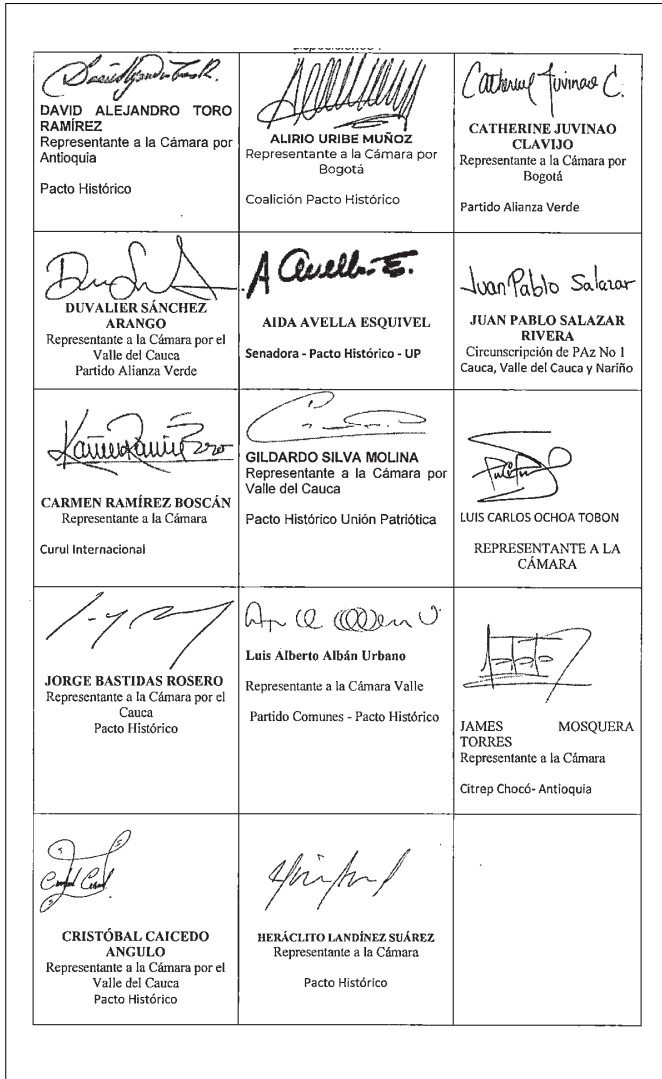 DAVID ALEJANDRO TORO
RAMÍREZ
Representante a la Cámara por
Antioquia
Pacto Histórico
ALIRIO URIBE MUÑOZ
Representante a la Cámara por
Bogotá
Coalición Pacto Histórico
Catherine Juvinao C.
CATHERINE JUVINAO
CLAVIJO
Representante a la Cámara por
Bogotá
Partido Alianza Verde
DUVALIER SÁNCHEZ
ARANGO
Representante a la Cámara por el
Valle del Cauca
Partido Alianza Verde
A Avella E.
AIDA AVELLA ESQUIVEL
Senadora - Pacto Histórico - UP
Juan Pablo Salazar
JUAN PABLO SALAZAR
RIVERA
Circunscripción de PAz No 1
Cauca, Valle del Cauca y Nariño
CARMEN RAMÍREZ BOSCÁN
Representante a la Cámara
Curul Internacional
GILDARDO SILVA MOLINA
Representante a la Cámara por
Valle del Cauca
Pacto Histórico Unión Patriótica
LUIS CARLOS OCHOA TOBON
REPRESENTANTE A LA
CÁMARA
JORGE BASTIDAS ROSERO
Representante a la Cámara por el
Cauca
Pacto Histórico
Luis Alberto Albán Urbano
Representante a la Cámara Valle
Partido Comunes - Pacto Histórico
JAMES MOSQUERA
TORRES
Representante a la Cámara
Citrep Chocó- Antioquia
CRISTÓBAL CAICEDO
ANGULO
Representante a la Cámara por el
Valle del Cauca
Pacto Histórico
HERÁCLITO LANDÍNEZ SUÁREZ
Representante a la Cámara
Pacto Histórico